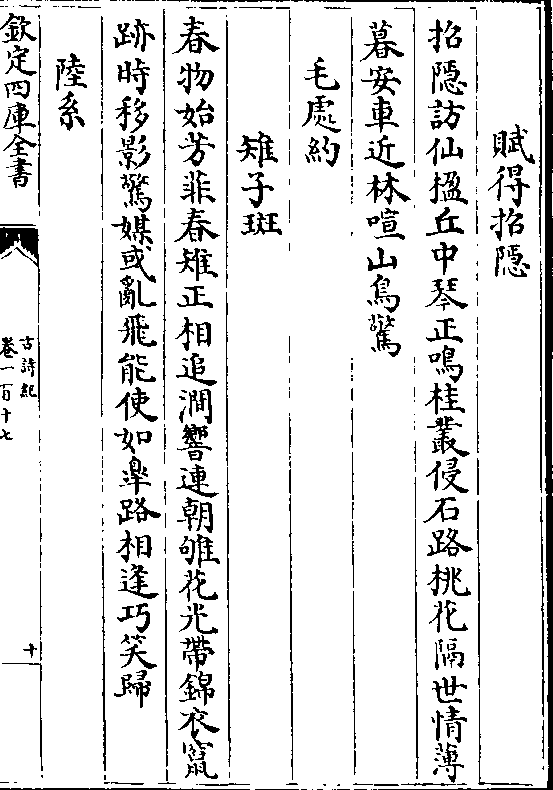 賦得招隠
招隠訪仙楹丘中琴正鳴桂叢侵石路桃花隔世情薄
暮安車近林喧山鳥驚
毛處約
雉子斑
春物始芳菲春雉正相追澗響連朝雊花光帶錦衣竄
跡時移影驚媒或亂飛能使如臯路相逢巧笑歸
陸系
欽定四庫全書
古詩紀
卷一百十七
十